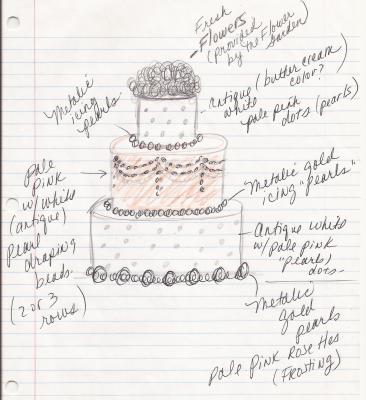 Fresh
Flowers
(provided
by the Flower
Garden)
Antique (butter cream
white color?
pale pink
dots (pearls)
Metalic
icing
pearls
pale
pink
w/ white
(antique)
pearl
draping
beads.
(2 or 3
rows)
Metalic gold
icing "pearls"
Antique white
w/ pale pink
"pearls)
dots.
Metalic
gold
pearls
pale pink Rose ttes
(Frosting)